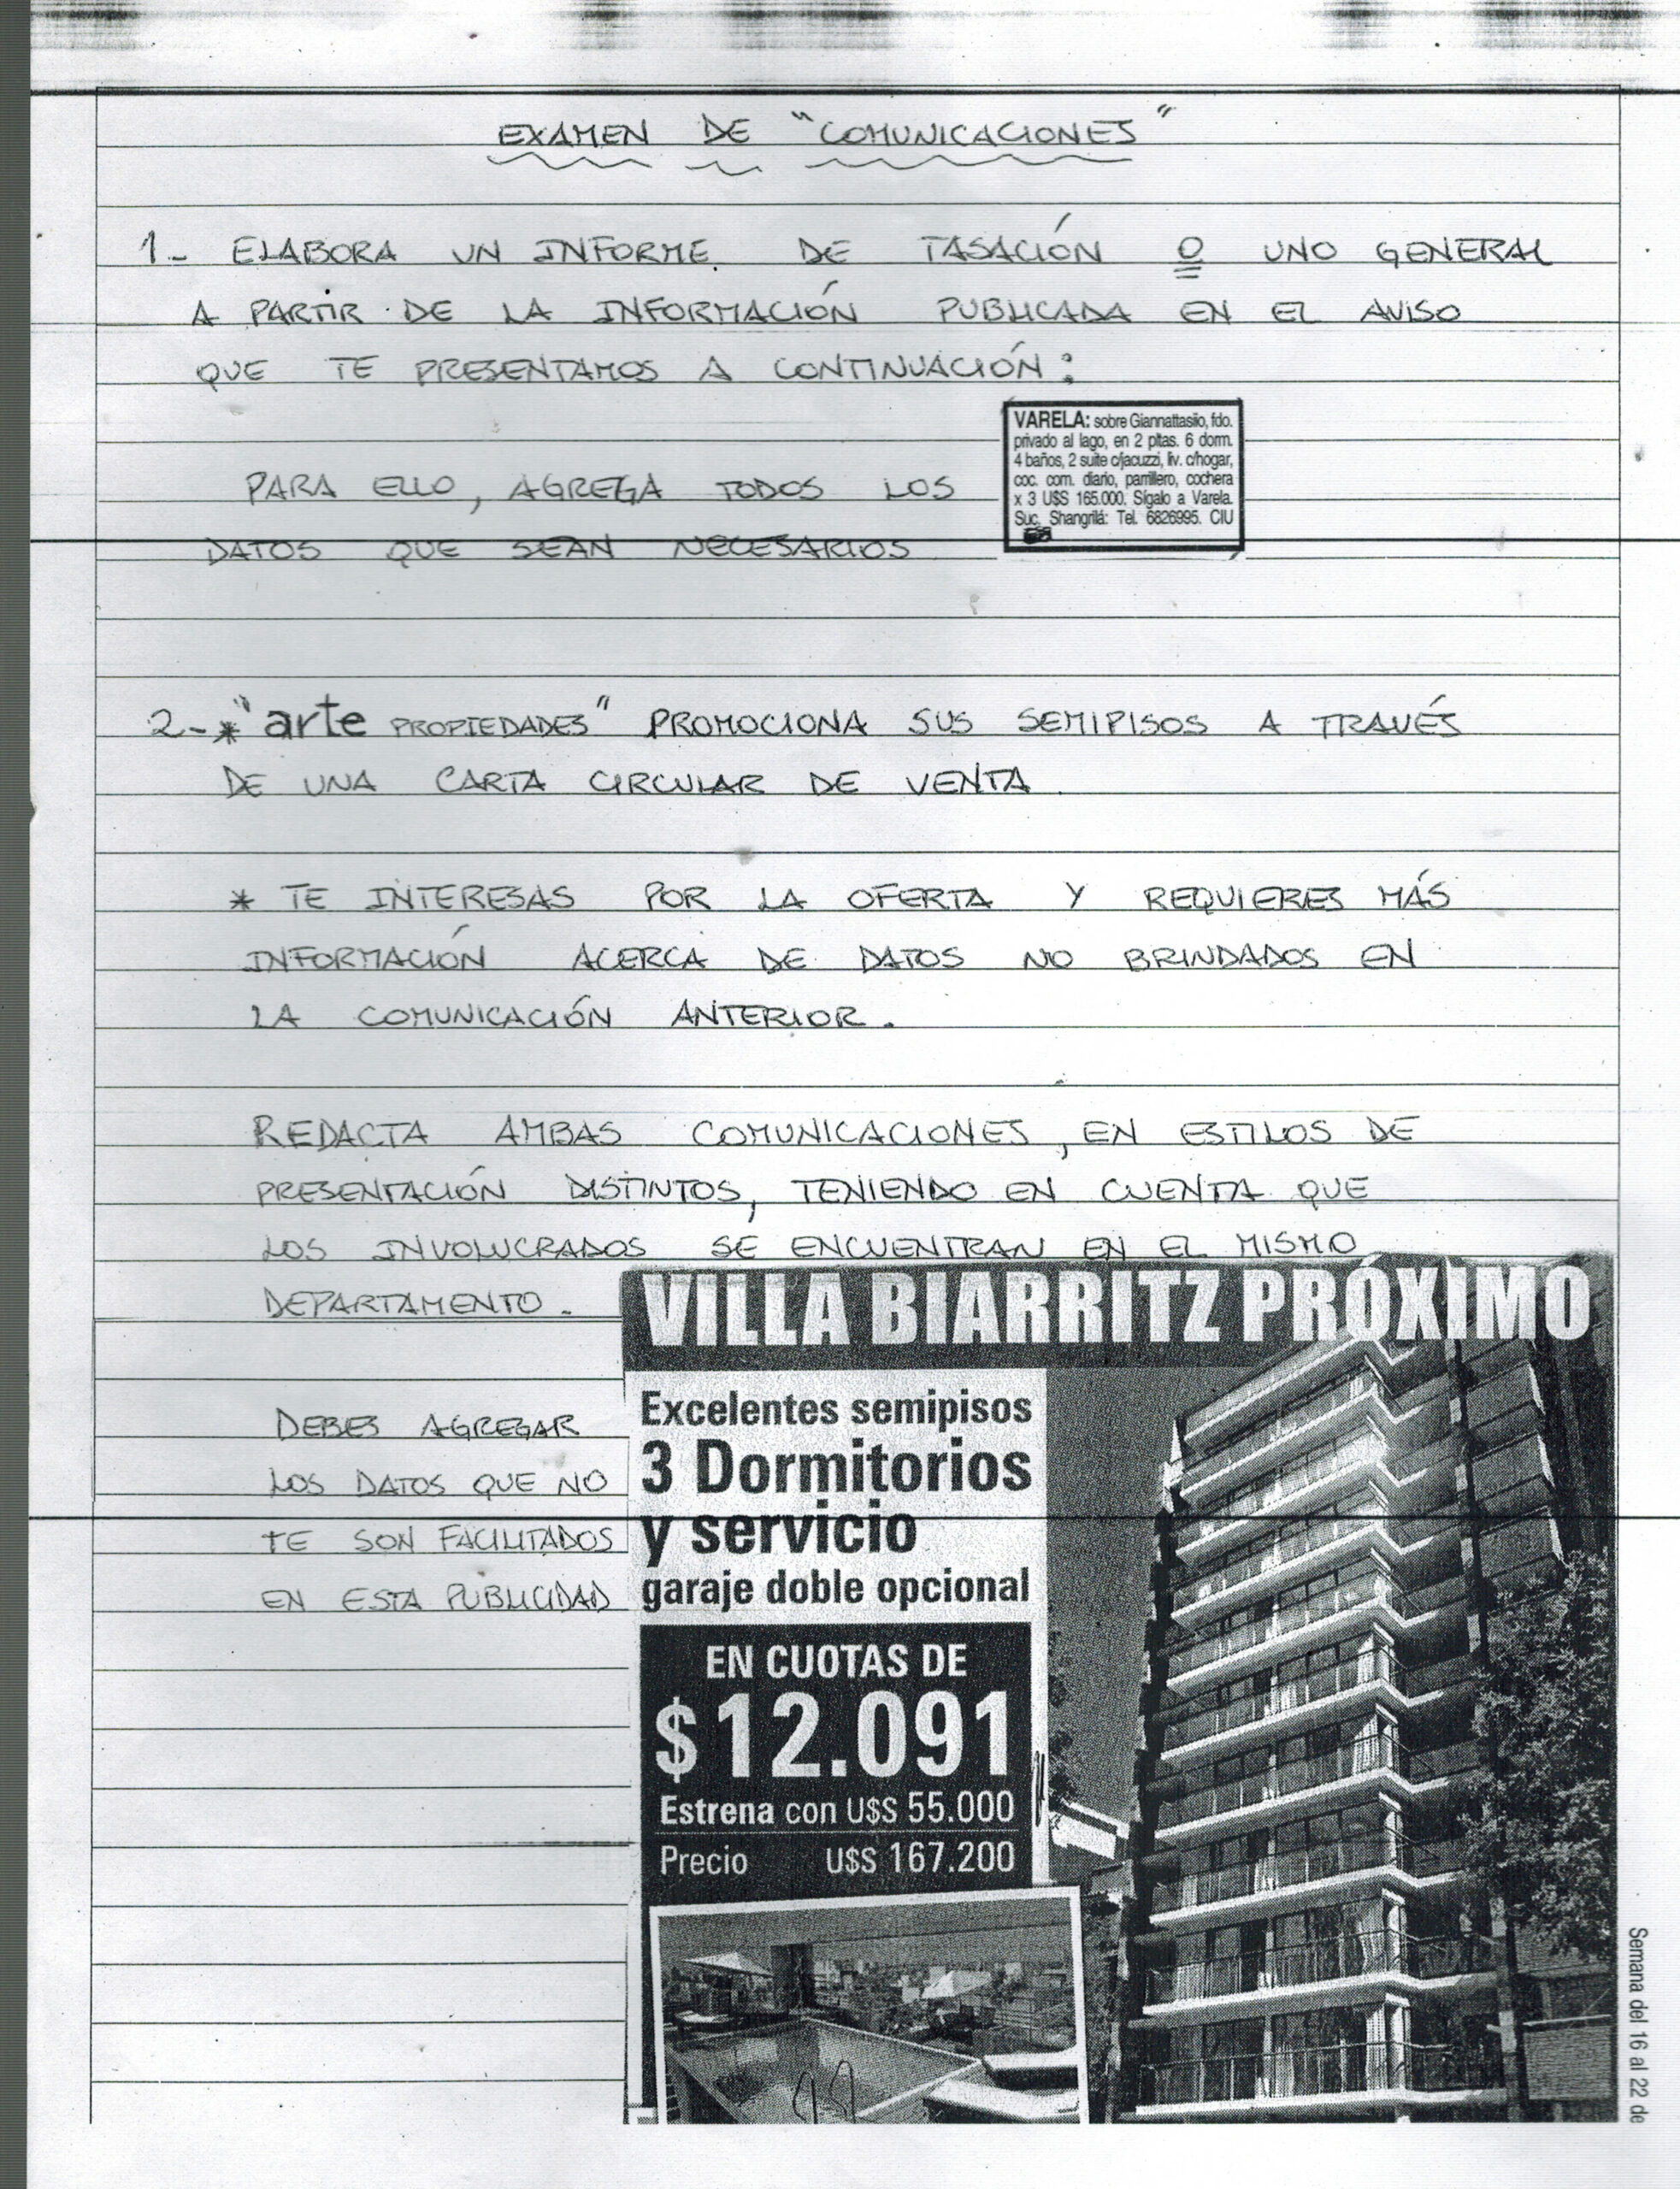 EXAMEN DE "COMUNICACIONES"
1- ELABORA UN INFORME DE TASACIÓN O UNO GENERAL
A PARTIR DE LA INFORMACIÓN PUBLICADA EN EL AVISO
QUE TE PRESENTAMOS A CONTINUACIÓN:
VARELA: sobre Giannattasiio, fdo.
privado al lago, en 2 pltas. 6 dorm.
4 baños, 2 suite c/jacuzzi, liv. c/hogar,
coc. com. diario, parrillero, cochera
x 3 U$S 165.000. Sígalo a Varela.
Suc. Shangrilá: Tel. 6826995. CIU
PARA ELLO, AGREGA TODOS LOS
DATOS QUE SEAN NECESARIOS
2-* "arte PROPIEDADES" PROMOCIONA SUS SEMIPISOS A TRAVÉS
DE UNA CARTA CIRCULAR DE VENTA.
* TE INTERESAS POR LA OFERTA Y REQUIERES MÁS
INFORMACIÓN ACERCA DE DATOS NO BRINDADOS EN
LA COMUNICACIÓN ANTERIOR.
REDACTA AMBAS COMUNICACIONES, EN ESTILOS DE
PRESENTACIÓN DISTINTOS, TENIENDO EN CUENTA QUE
LOS INVOLUCRADOS SE ENCUENTRAN EN EL MISMO
DEPARTAMENTO.
DEBES AGREGAR
LOS DATOS QUE NO
TE SON FACILITADOS
EN ESTA PUBLICIDAD
VILLA BIARRITZ PRÓXIMO
Excelentes semipisos
3 Dormitorios
y servicio
garaje doble opcional
EN CUOTAS DE
$12.091
Estrena con U$S 55.000
Precio U$S 167.200
Semana del 16 al 22 de